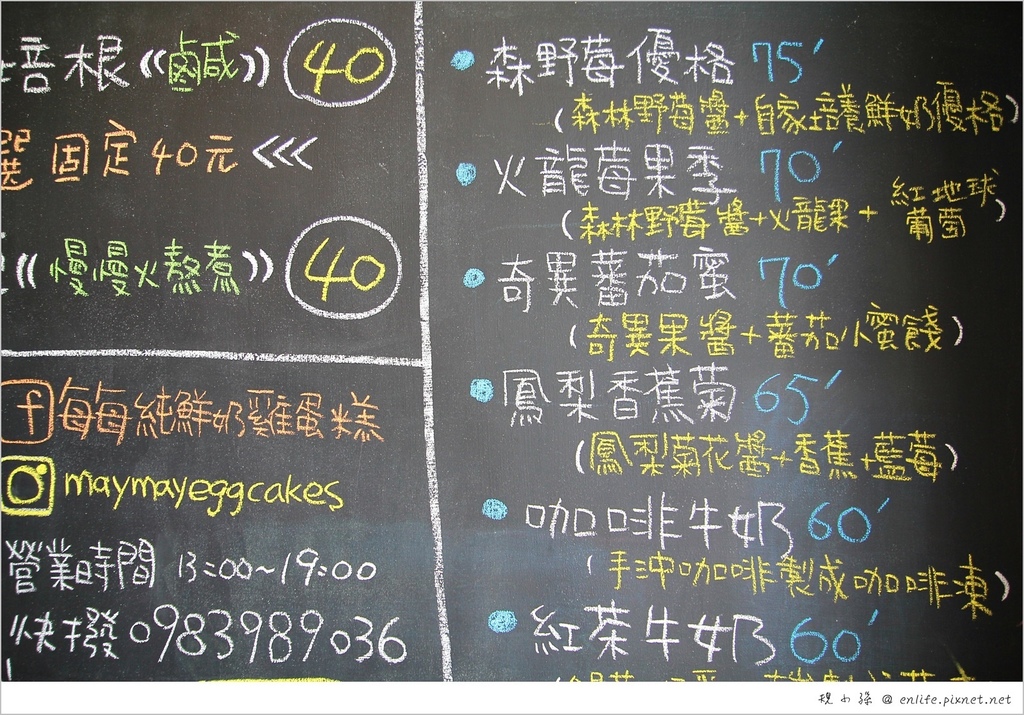 培根《鹵咸》40
選 固定40元 <<<
《慢慢火熬煮》40
f 每每純鮮奶雞蛋糕
maymayeggcakes
營業時間 13:00~19:00
快撥0983989036
森野莓優格 75'
(森林野莓醬+自家培養鮮奶優格)
火龍莓果季 70'
(森林野莓醬+火龍果+紅地球葡萄)
奇異蕃茄蜜 70'
(奇異果醬+蕃茄小蜜餞)
鳳梨香蕉菊 65'
(鳳梨菊花醬+香蕉+藍莓)
咖啡牛奶 60'
(手沖咖啡製成咖啡凍)
紅茶牛奶 60'
@ enlife.pixnet.net